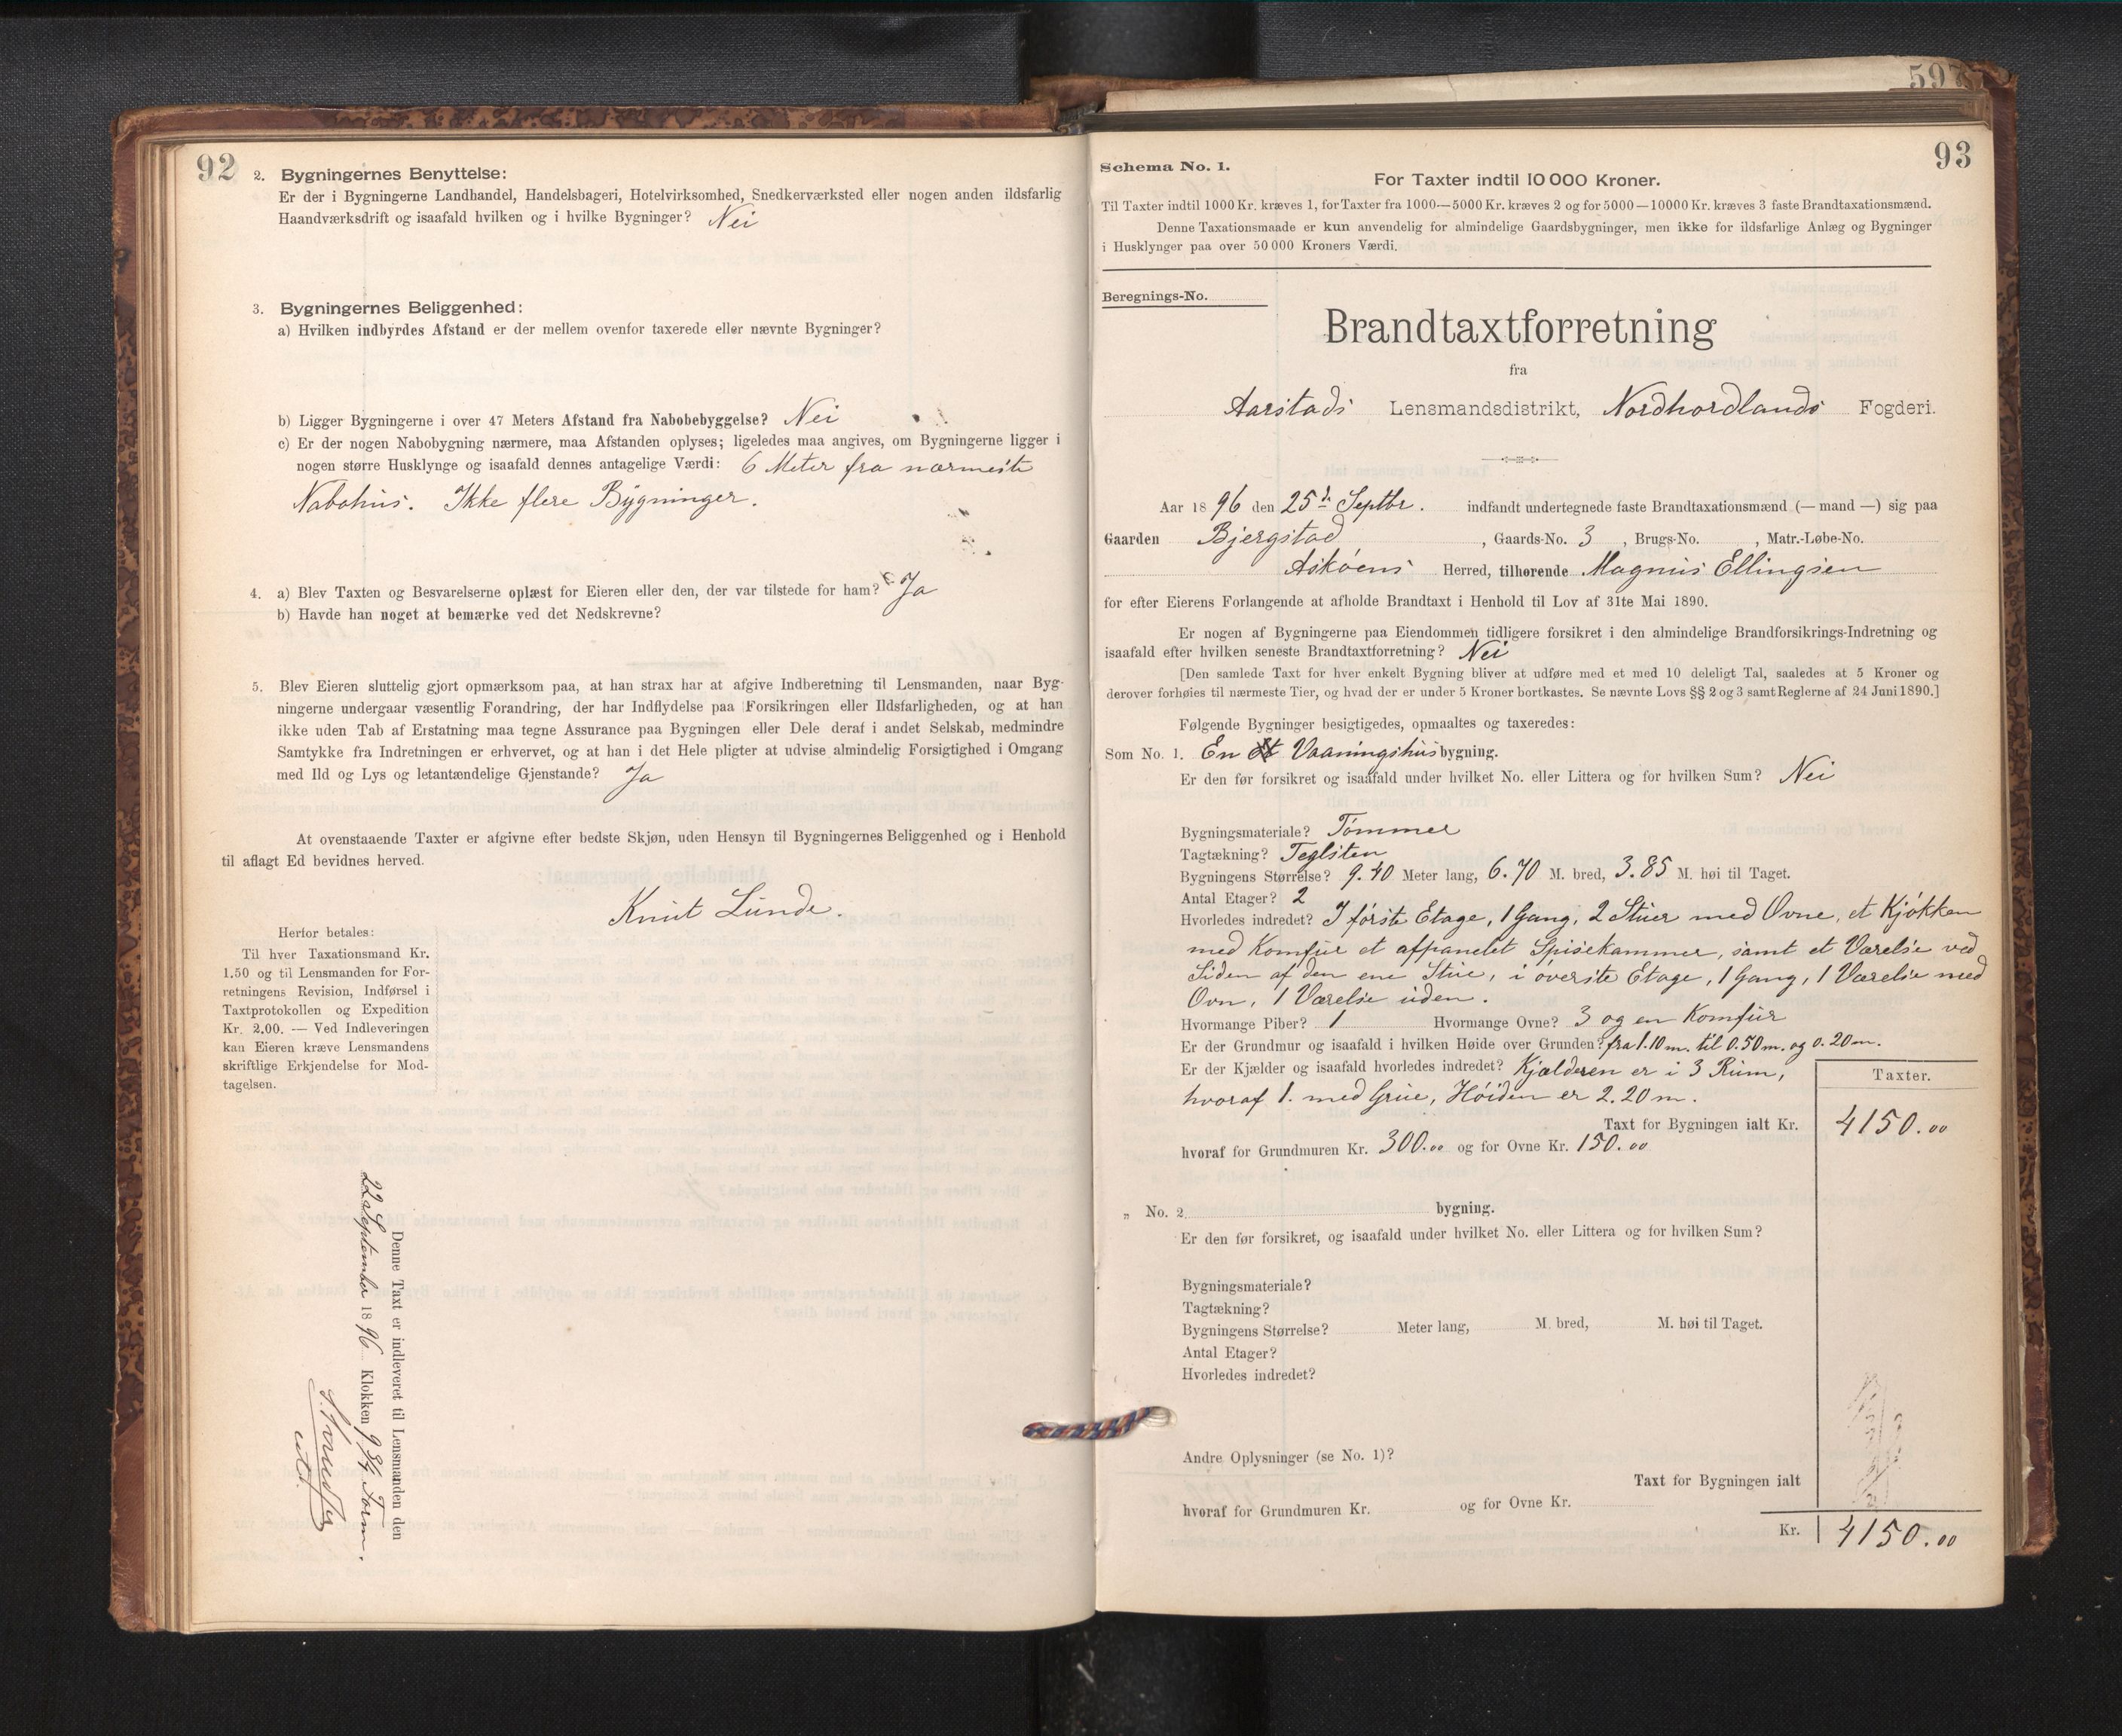 92
2. Bygningernes Benyttelse:
Er der i Bygningerne Landhandel, Handelsbageri, Hotelvirksomhed, Snedkerværksted eller nogen anden ildsfarlig
Haandværksdrift og isaafald hvilken og i hvilke Bygninger? Nei
3. Bygningernes Beliggenhed:
a) Hvilken indbyrdes Afstand er der mellem ovenfor taxerede eller nævnte Bygninger?
b) Ligger Bygningerne i over 47 Meters Afstand fra Nabobebyggelse? Nei
c) Er der nogen Nabobygning nærmere, maa Afstanden oplyses; ligeledes maa angives, om Bygningerne ligger i
nogen større Husklynge og isaafald dennes antagelige Værdi: 6 Meter fra nærmeste
Nabohus. Ikke flere Bygninger.
4. a) Blev Taxten og Besvarelserne oplæst for Eieren eller den, der var tilstede for ham? Ja
b) Havde han noget at bemærke ved det Nedskrevne?
5. Blev Eieren sluttelig gjort opmærksom paa, at han strax har at afgive Indberetning til Lensmanden, naar Byg-
ningerne undergaar væsentlig Forandring, der har Indflydelse paa Forsikringen eller Ildsfarligheden, og at han
ikke uden Tab af Erstatning maa tegne Assurance paa Bygningen eller Dele deraf i andet Selskab, medmindre
Samtykke fra Indretningen er erhvervet, og at han i det Hele pligter at udvise almindelig Forsigtighed i Omgang
med Ild og Lys og letantændelige Gjenstande? Ja
At ovenstaaende Taxter er afgivne efter bedste Skjøn, uden Hensyn til Bygningernes Beliggenhed og i Henhold
til aflagt Ed bevidnes herved.
Knut Lunde.
Herfor betales:
Til hver Taxationsmand Kr.
1.50 og til Lensmanden for For-
retningens Revision, Indførsel i
Taxtprotokollen og Expedition
Kr. 2.00. — Ved Indleveringen
kan Eieren kræve Lensmandens
skriftlige Erkjendelse for Mod-
tagelsen.
Denne Taxt er indleveret til Lensmanden den
22 September 1896 Klokken 9 3/4 Form.
597
93
Schema No. 1.
For Taxter indtil 10 000 Kroner.
Til Taxter indtil 1000 Kr. kræves 1, for Taxter fra 1000—5000 Kr. kræves 2 og for 5000—10000 Kr. kræves 3 faste Brandtaxationsmænd.
Denne Taxationsmaade er kun anvendelig for almindelige Gaardsbygninger, men ikke for ildsfarlige Anlæg og Bygninger
i Husklynger paa over 50 000 Kroners Værdi.
Beregnings-No.
Brandtaxtforretning
fra
Aarstads Lensmandsdistrikt, Nordhordlands Fogderi.
Aar 1896 den 25de Septbr. indfandt undertegnede faste Brandtaxationsmænd (—mand—) sig paa
Gaarden Bjergstad, Gaards-No. 3, Brugs-No. , Matr.-Løbe-No.
Askøens Herred, tilhørende Magnus Ellingsen
for efter Eierens Forlangende at afholde Brandtaxt i Henhold til Lov af 31te Mai 1890.
Er nogen af Bygningerne paa Eiendommen tidligere forsikret i den almindelige Brandforsikrings-Indretning og
isaafald efter hvilken seneste Brandtaxtforretning? Nei
[Den samlede Taxt for hver enkelt Bygning bliver at udføre med et med 10 deleligt Tal, saaledes at 5 Kroner og
derover forhøies til nærmeste Tier, og hvad der er under 5 Kroner bortkastes. Se nævnte Lovs §§ 2 og 3 samt Reglerne af 24 Juni 1890.]
Følgende Bygninger besigtigedes, opmaaltes og taxeredes:
Som No. 1. En Vaaningshusbygning.
Er den før forsikret og isaafald under hvilket No. eller Littera og for hvilken Sum? Nei
Bygningsmateriale? Tømmer
Tagtækning? Teglsten
Bygningens Størrelse? 9.40 Meter lang, 6.70 M. bred, 3.85 M. høi til Taget.
Antal Etager? 2
Hvorledes indredet? I første Etage, 1 Gang, 2 Stuer med Ovne, et Kjøkken
med Komfur et afpanelet Spisekammer, samt et Værelse ved
Siden af den ene Stue, i øverste Etage, 1 Gang, 1 Værelse med
Ovn, 1 Værelse uden.
Hvormange Piber? 1 Hvormange Ovne? 3 og en Komfur
Er der Grundmur og isaafald i hvilken Høide over Grunden? fra 1.10 m. til 0.50 m. og 0.20 m.
Er der Kjælder og isaafald hvorledes indredet? Kjælderen er i 3 Rum,
hvoraf 1. med Grue, Høiden er 2.20 m.
Taxter.
Taxt for Bygningen ialt Kr. 4150.00
hvoraf for Grundmuren Kr. 300.00 og for Ovne Kr. 150.00
„ No. 2 bygning.
Er den før forsikret, og isaafald under hvilket No. eller Littera og for hvilken Sum?
Bygningsmateriale?
Tagtækning?
Bygningens Størrelse? Meter lang, M. bred, M. høi til Taget.
Antal Etager?
Hvorledes indredet?
Andre Oplysninger (se No. 1)?
Taxt for Bygningen ialt
hvoraf for Grundmuren Kr. og for Ovne Kr.
Kr. 4150.00